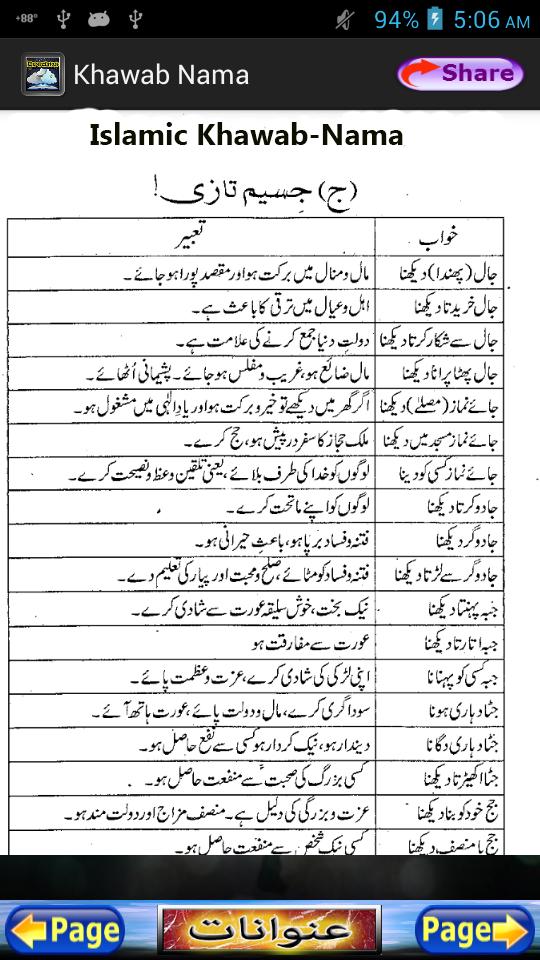 +88°
94%
5:06 AM
Khawab Nama
Share
Islamic Khawab-Nama
(ج) جسیم تازی!
خواب	تعبیر
جال (پھندا) دیکھنا	مال و منال میں برکت ہو اور مقصد پورا ہو جائے۔
جال خریدتا دیکھنا	اہل و عیال میں ترقی کا باعث ہے۔
جال سے شکار کرتا دیکھنا	دولتِ دنیا جمع کرنے کی علامت ہے۔
جال پھٹا پرانا دیکھنا	مال ضائع ہو، غریب و مفلس ہو جائے۔ پشیمانی اُٹھائے۔
جائے نماز (مصلےٰ) دیکھنا	اگر گھر میں دیکھے تو خیر و برکت ہو اور یادِ الٰہی میں مشغول ہو۔
جائے نماز مسجد میں دیکھنا	ملک حجاز کا سفر درپیش ہو، حج کرے۔
جائے نماز کسی کو دینا	لوگوں کو خدا کی طرف بلائے، یعنی تلقین و وعظ و نصیحت کرے۔
جادو کرتا دیکھنا	لوگوں کو اپنے ماتحت کرے۔
جادوگر دیکھنا	فتنہ و فساد برپا ہو، باعثِ حیرانی ہو۔
جادوگر سے لڑتا دیکھنا	فتنہ و فساد کو مٹائے، صلح و محبت اور پیار کی تعلیم دے۔
جبہ پہنتا دیکھنا	نیک بخت، خوش سلیقہ عورت سے شادی کرے۔
جبہ اتارتا دیکھنا	عورت سے مفارقت ہو
جبہ کسی کو پہنانا	اپنی لڑکی کی شادی کرے، عزت و عظمت پائے۔
جٹادہاری ہونا	سوداگری کرے، مال و دولت پائے، عورت ہاتھ آئے۔
جٹادہاری دگانا	دیندار ہو، نیک کردار ہو کسی سے نفع حاصل ہو۔
جٹا اکھیڑتا دیکھنا	کسی بزرگ کی صحبت سے منفعت حاصل ہو۔
جج خود کو بنا دیکھنا	عزت و بزرگی کی دلیل ہے۔ منصف مزاج اور دولت مند ہو۔
جج یا منصف دیکھنا	کسی نیک شخص سے منفعت حاصل ہو۔
Page
عنوانات
Page